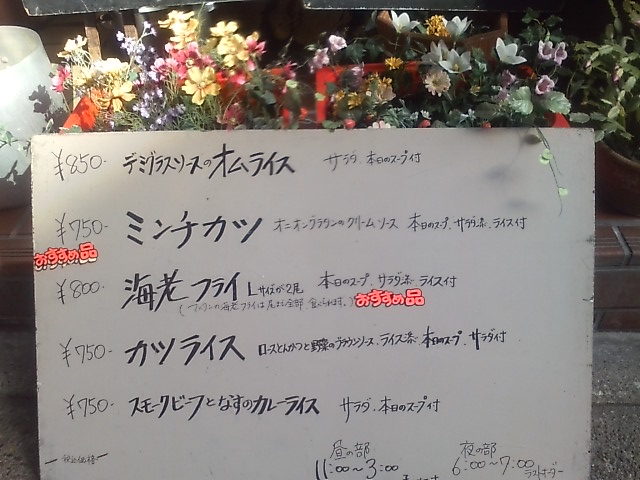 ¥850- デミグラスソースのオムライス サラダ、本日のスープ付
¥750- ミンチカツ オニオングラタンのクリームソース 本日のスープ、サラダ添、ライス付
おすすめ品
¥800- 海老フライ Lサイズが2尾 本日のスープ、サラダ添 ライス付
海老フライは尾まで全部食べられます。) おすすめ品
¥750- カツライス ロースとんかつと野菜のブラウンソース、ライス添 本日のスープ、サラダ付
¥750- スモークビーフとなすのカレーライス サラダ、本日のスープ付
税込価格 昼の部 夜の部
11:00~3:00 6:00~7:00 ラストオーダー